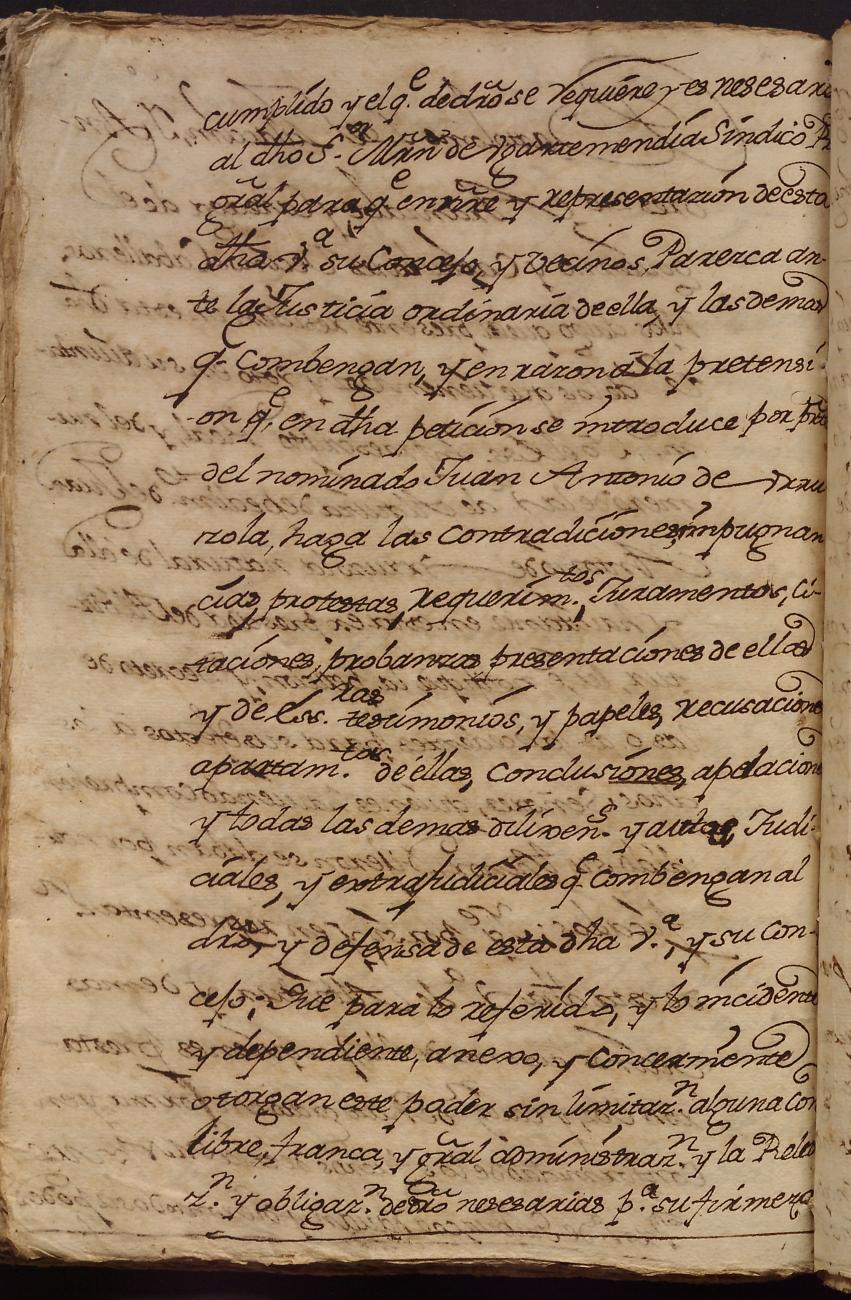 cumplido y el q.e de dro se requiere y es nesesario
al dho S.or Mrn de Ygartemendia Sindico
gral para q.e en nre y representazion de esta
dha v.a su Concejo, y vecinos Parezca an-
te la Justicia ordinaria de ella, y las demas
q.e combengan, y en razon a la pretensi-
on q.e en dha peticion se introduce por pte
del nominado Juan Antonio de
rola, haga las Contradiciones, impugnan
cias, protestas, requerim.tos, Juramentos, ci-
taciones, probanzas presentaciones de ellas
y de Ess.ras testimonios, y papeles, recusaciones
apartam.tos de ellas, conclusiones, apelaciones
y todas las demas dilixen.s y autos, Judi-
ciales, y extrajudiciales q.e combengan al
dro, y defensa de esta dha v.a, y su Con-
cejo; Que para lo referido, y lo incidente
y dependiente, anexo, y concerniente
otorgan este poder sin limitaz.n alguna con
libre, franca, y gral administraz.n y la Releva
z.n y obligaz.n de dro nesesarias p.a su firmeza